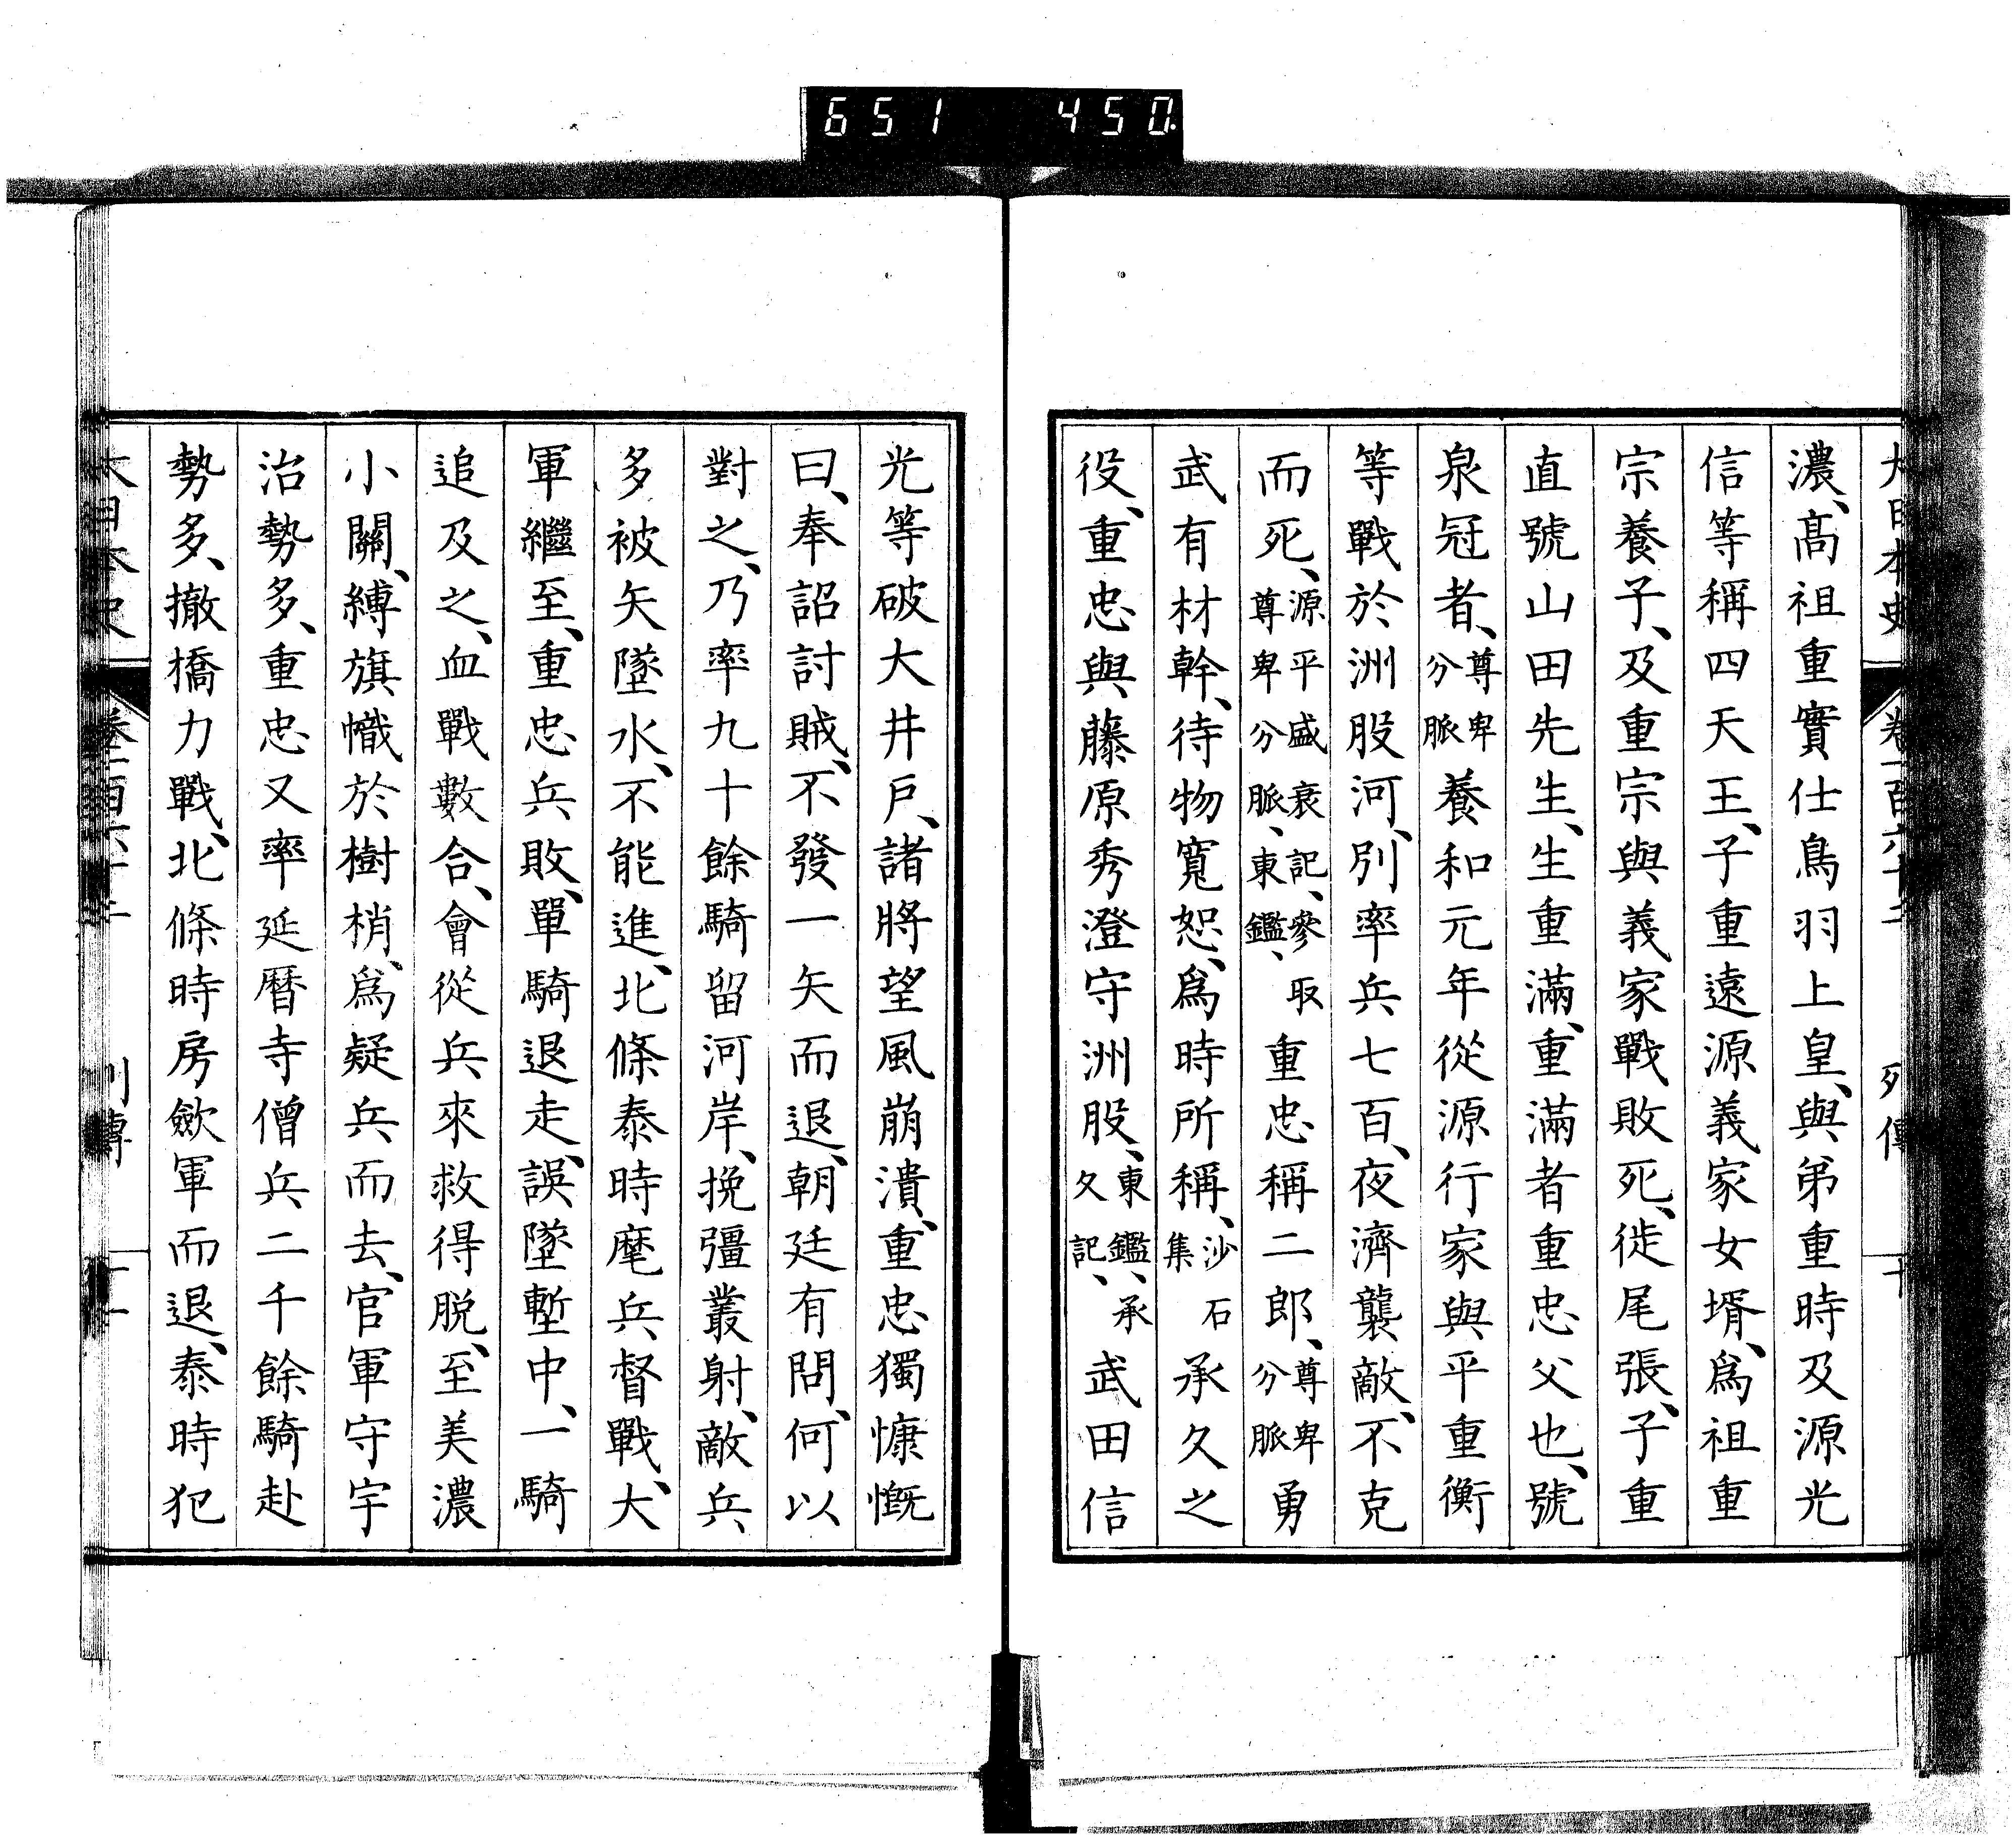 651 450
大日本史 卷一百六十二 列傳 十
濃、髙祖重實仕鳥羽上皇、與弟重時及源光
信等稱四天王、子重遠源義家女壻、爲祖重
宗養子、及重宗與義家戰敗死、徙尾張、子重
直號山田先生、生重滿、重滿者重忠父也、號
泉冠者、尊卑分脈養和元年從源行家與平重衡
等戰於洲股河、別率兵七百、夜濟襲敵、不克
而死、源平盛衰記、參取尊卑分脈、東鑑、重忠稱二郎、尊卑分脈勇
武有材幹、待物寬恕、爲時所稱、沙石集承久之
役、重忠與藤原秀澄守洲股、東鑑、承久記、武田信
光等破大井戶、諸將望風崩潰、重忠獨慷慨
曰、奉詔討賊、不發一矢而退、朝廷有問、何以
對之、乃率九十餘騎留河岸、挽彊叢射、敵兵
多被矢墜水、不能進、北條泰時麾兵督戰、大
軍繼至、重忠兵敗、單騎退走、誤墜塹中、一騎
追及之、血戰數合、會從兵來救得脫、至美濃
小關、縛旗幟於樹梢、爲疑兵而去、官軍守宇
治勢多、重忠又率延曆寺僧兵二千餘騎赴
勢多、撤橋力戰、北條時房歛軍而退、泰時犯
大日本史 列傳